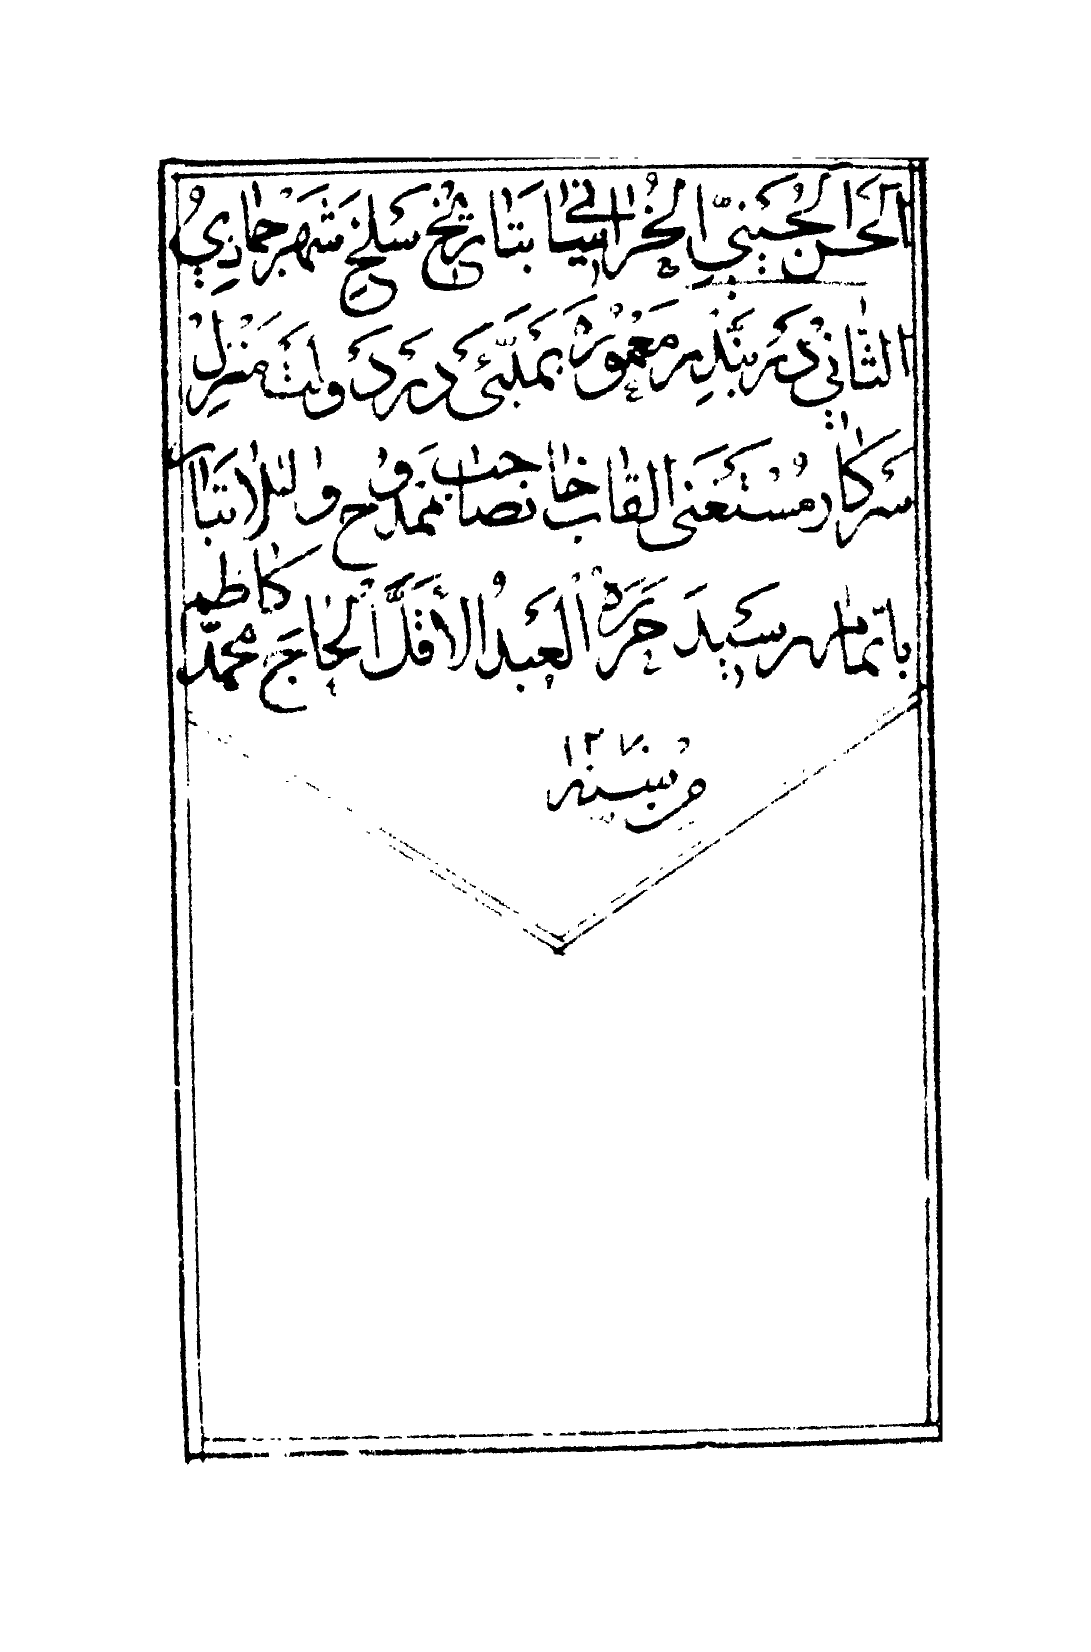 الحَسَن الحُسَینِيِّ الخُراسانِي بتاریخ سَلخ شَهرِ جمادِيُ
الثّانِي دَر بَندَرِ مَعمُورَهٔ بمبَئی دَر دَولَت مَنزِلِ
سَرکار مُستَغنَی القاب جناب ممدوح و
باتمام رسید حَرَّرَهُ العَبدُ الاَقَلّ الحاج محمّد کاظم
۱۲۷
من سنه